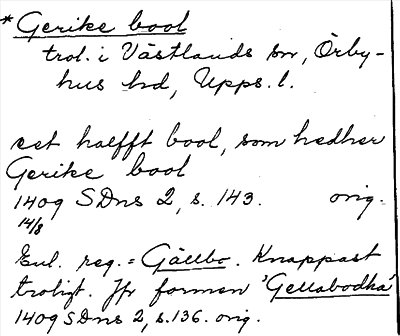 * Gerike bool
trol. i Västlands sn, Örby-
hus hd, Upps. l.
eet halfft bool, som hedher
Gerike bool
1409 SDns 2, s. 143. orig.
14/8
Enl. reg. = Gällbo. Knappast
troligt. Jfr formen 'Gellabodha'
1409 SDns 2, s. 136. orig.